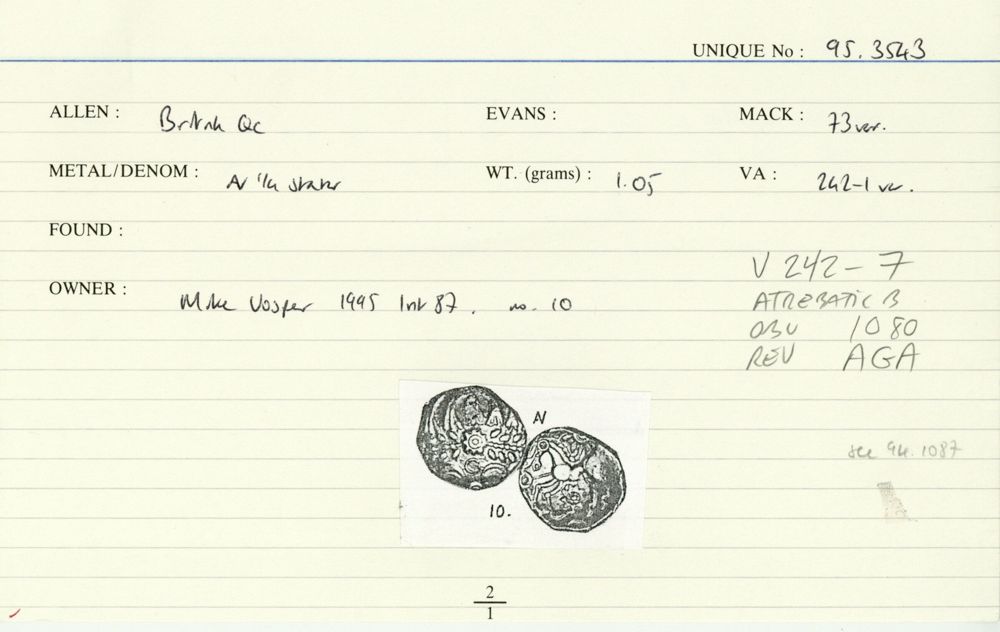 UNIQUE No : 95.3543
ALLEN : British Qc EVANS : MACK : 73 var.
METAL/DENOM : AV 1/4 stater WT. (grams) : 1.05 VA : 242-1 var.
FOUND :
V 242-7
OWNER : Mike Vosper 1995 list 87, no. 10
ATREBATIC B
OBV 1080
REV AGA
AV
see 94.1087
10.
2
1